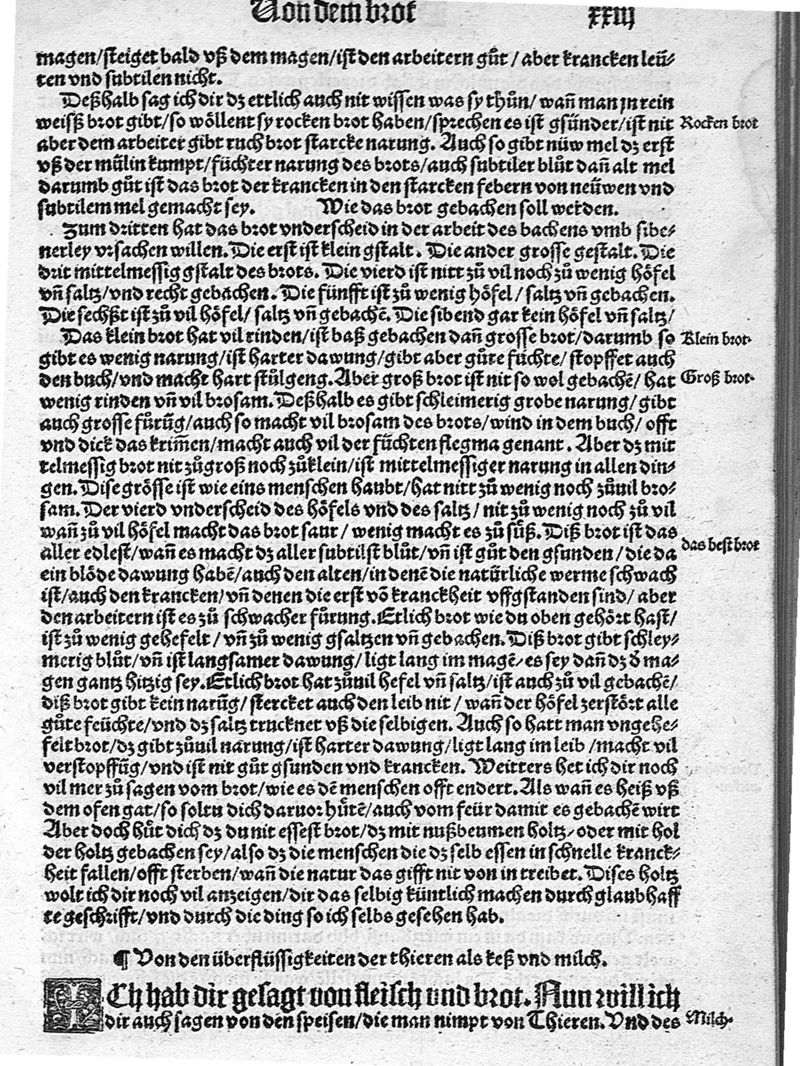 Von dem brot xxiij
magen/steiget bald vß dem magen/ist den arbeitern gůt/aber krancken leü⸗
ten vnd subtilen nicht.
Deßhalb sag ich dir dz ettlich auch nit wissen was sy thůn/wañ man jn rein
weiß brot gibt/so wöllent sy rocken brot haben/sprechen es ist gsünder/ist nit Rocken brot
aber dem arbeiter gibt ruch brot starcke narung. Auch so gibt nüw mel dz erst
vß der mülin kumpt/füchter narung des brots/auch subtiler blůt dañ alt mel
darumb gůt ist das brot der krancken in den starcken febern von neüwen vnd
subtilem mel gemacht sey. Wie das brot gebachen soll werden.
Zum dritten hat das brot vnderscheid in der arbeit des bachens vmb sibe⸗
nerley vrsachen willen. Die erst ist klein gstalt. Die ander grosse gestalt. Die
drit mittelmessig gstalt des brots. Die vierd ist nitt zů vil noch zů wenig höfel
vñ saltz/vnd recht gebachen. Die fünfft ist zů wenig höfel/saltz vñ gebachen.
Die sechßt ist zů vil höfel/saltz vñ gebachẽ. Die sibend gar kein höfel vñ saltz/
Das klein brot hat vil rinden/ist baß gebachen dañ grosse brot/darumb so Klein brot⸗
gibt es wenig narung/ist harter dawung/gibt aber gůte füchte/stopffet auch
den buch/vnd macht hart stůlgeng. Aber groß brot ist nit so wol gebachẽ/hat Groß brot⸗
wenig rinden vñ vil brosam. Deßhalb es gibt schleimerig grobe narung/gibt
auch grosse fürũg/auch so macht vil brosam des brots/wind in dem buch/offt
vnd dick das krim̃en/macht auch vil der füchten flegma genant. Aber dz mit
telmessig brot nit zů groß noch zů klein/ist mittelmessiger narung in allen din⸗
gen. Dise grösse ist wie eins menschen haubt/hat nitt zů wenig noch zůuil bro⸗
sam. Der vierd vnderscheid des höfels vnd des saltz/nit zů wenig noch zů vil
wañ zů vil höfel macht das brot saur/wenig macht es zů süß. Diß brot ist das
aller edlest/wañ es macht dz aller subtilst blůt/vñ ist gůt den gsunden/die da das best brot
ein blöde dawung habẽ/auch den alten/in denẽ die natürliche werme schwach
ist/auch den krancken/vñ denen die erst võ kranckheit vffgstanden sind/aber
den arbeitern ist es zů schwacher fürung. Etlich brot wie du oben gehört hast/
ist zů wenig gehefelt/vñ zů wenig gsaltzen vñ gebachen. Diß brot gibt schley⸗
merig blůt/vñ ist langsamer dawung/ligt lang im magẽ⸗es sey dañ dz ð ma⸗
gen gantz hitzig sey. Etlich brot hat zůuil hefel vñ saltz/ist auch zů vil gebachẽ/
diß brot gibt kein narũg/stercket auch den leib nit/wañ der höfel zerstört alle
gůte feüchte/vnd dz saltz trucknet vß die selbigen. Auch so hatt man vngehe⸗
felt brot/dz gibt zůuil narung/ist harter dawung/ligt lang im leib/macht vil
verstopffũg/vnd ist nit gůt gsunden vnd krancken. Weitters het ich dir noch
vil mer zů sagen vom brot/wie es dẽ menschen offt endert. Als wañ es heiß vß
dem ofen gat/so soltu dich daruor hütẽ/auch vom feür damit es gebachẽ wirt
Aber doch hüt dich dz du nit essest brot/dz mit nußbeumen holtz⸗oder mit hol
der holtz gebachen sey/also dz die menschen die dz selb essen in schnelle kranck⸗
heit fallen/offt sterben/wañ die natur das gifft nit von in treibet. Dises holtz
wolt ich dir noch vil anzeigen/dir das selbig küntlich machen durch glaubhaff
te geschrifft/vnd durch die ding so ich selbs gesehen hab.
¶ Von den überflüssigkeiten der thieren als keß vnd milch.
ICh hab dir gesagt von fleisch vnd brot. Nun will ich
dir auch sagen von den speisen/die man nimpt von Thieren. Vnd des Milch⸗